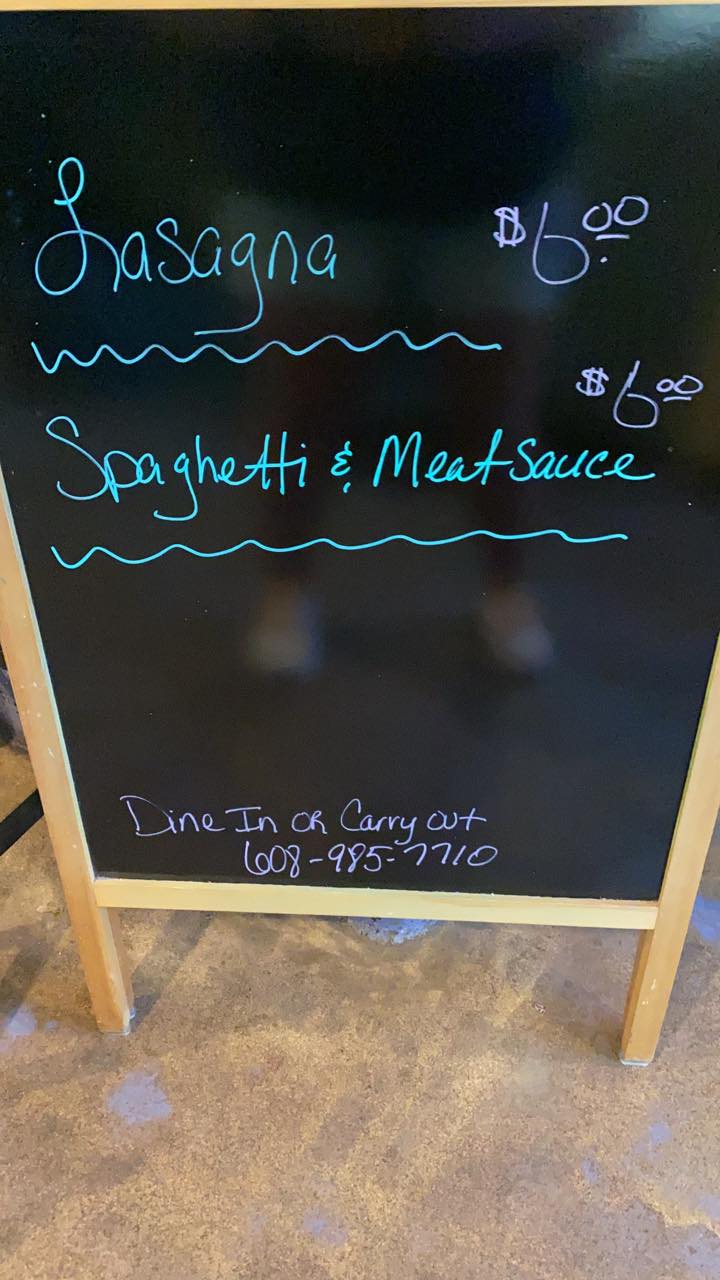 Lasagna $6.00
$6.00
Spaghetti & Meatsauce
Dine In or Carry out
608-985-7710